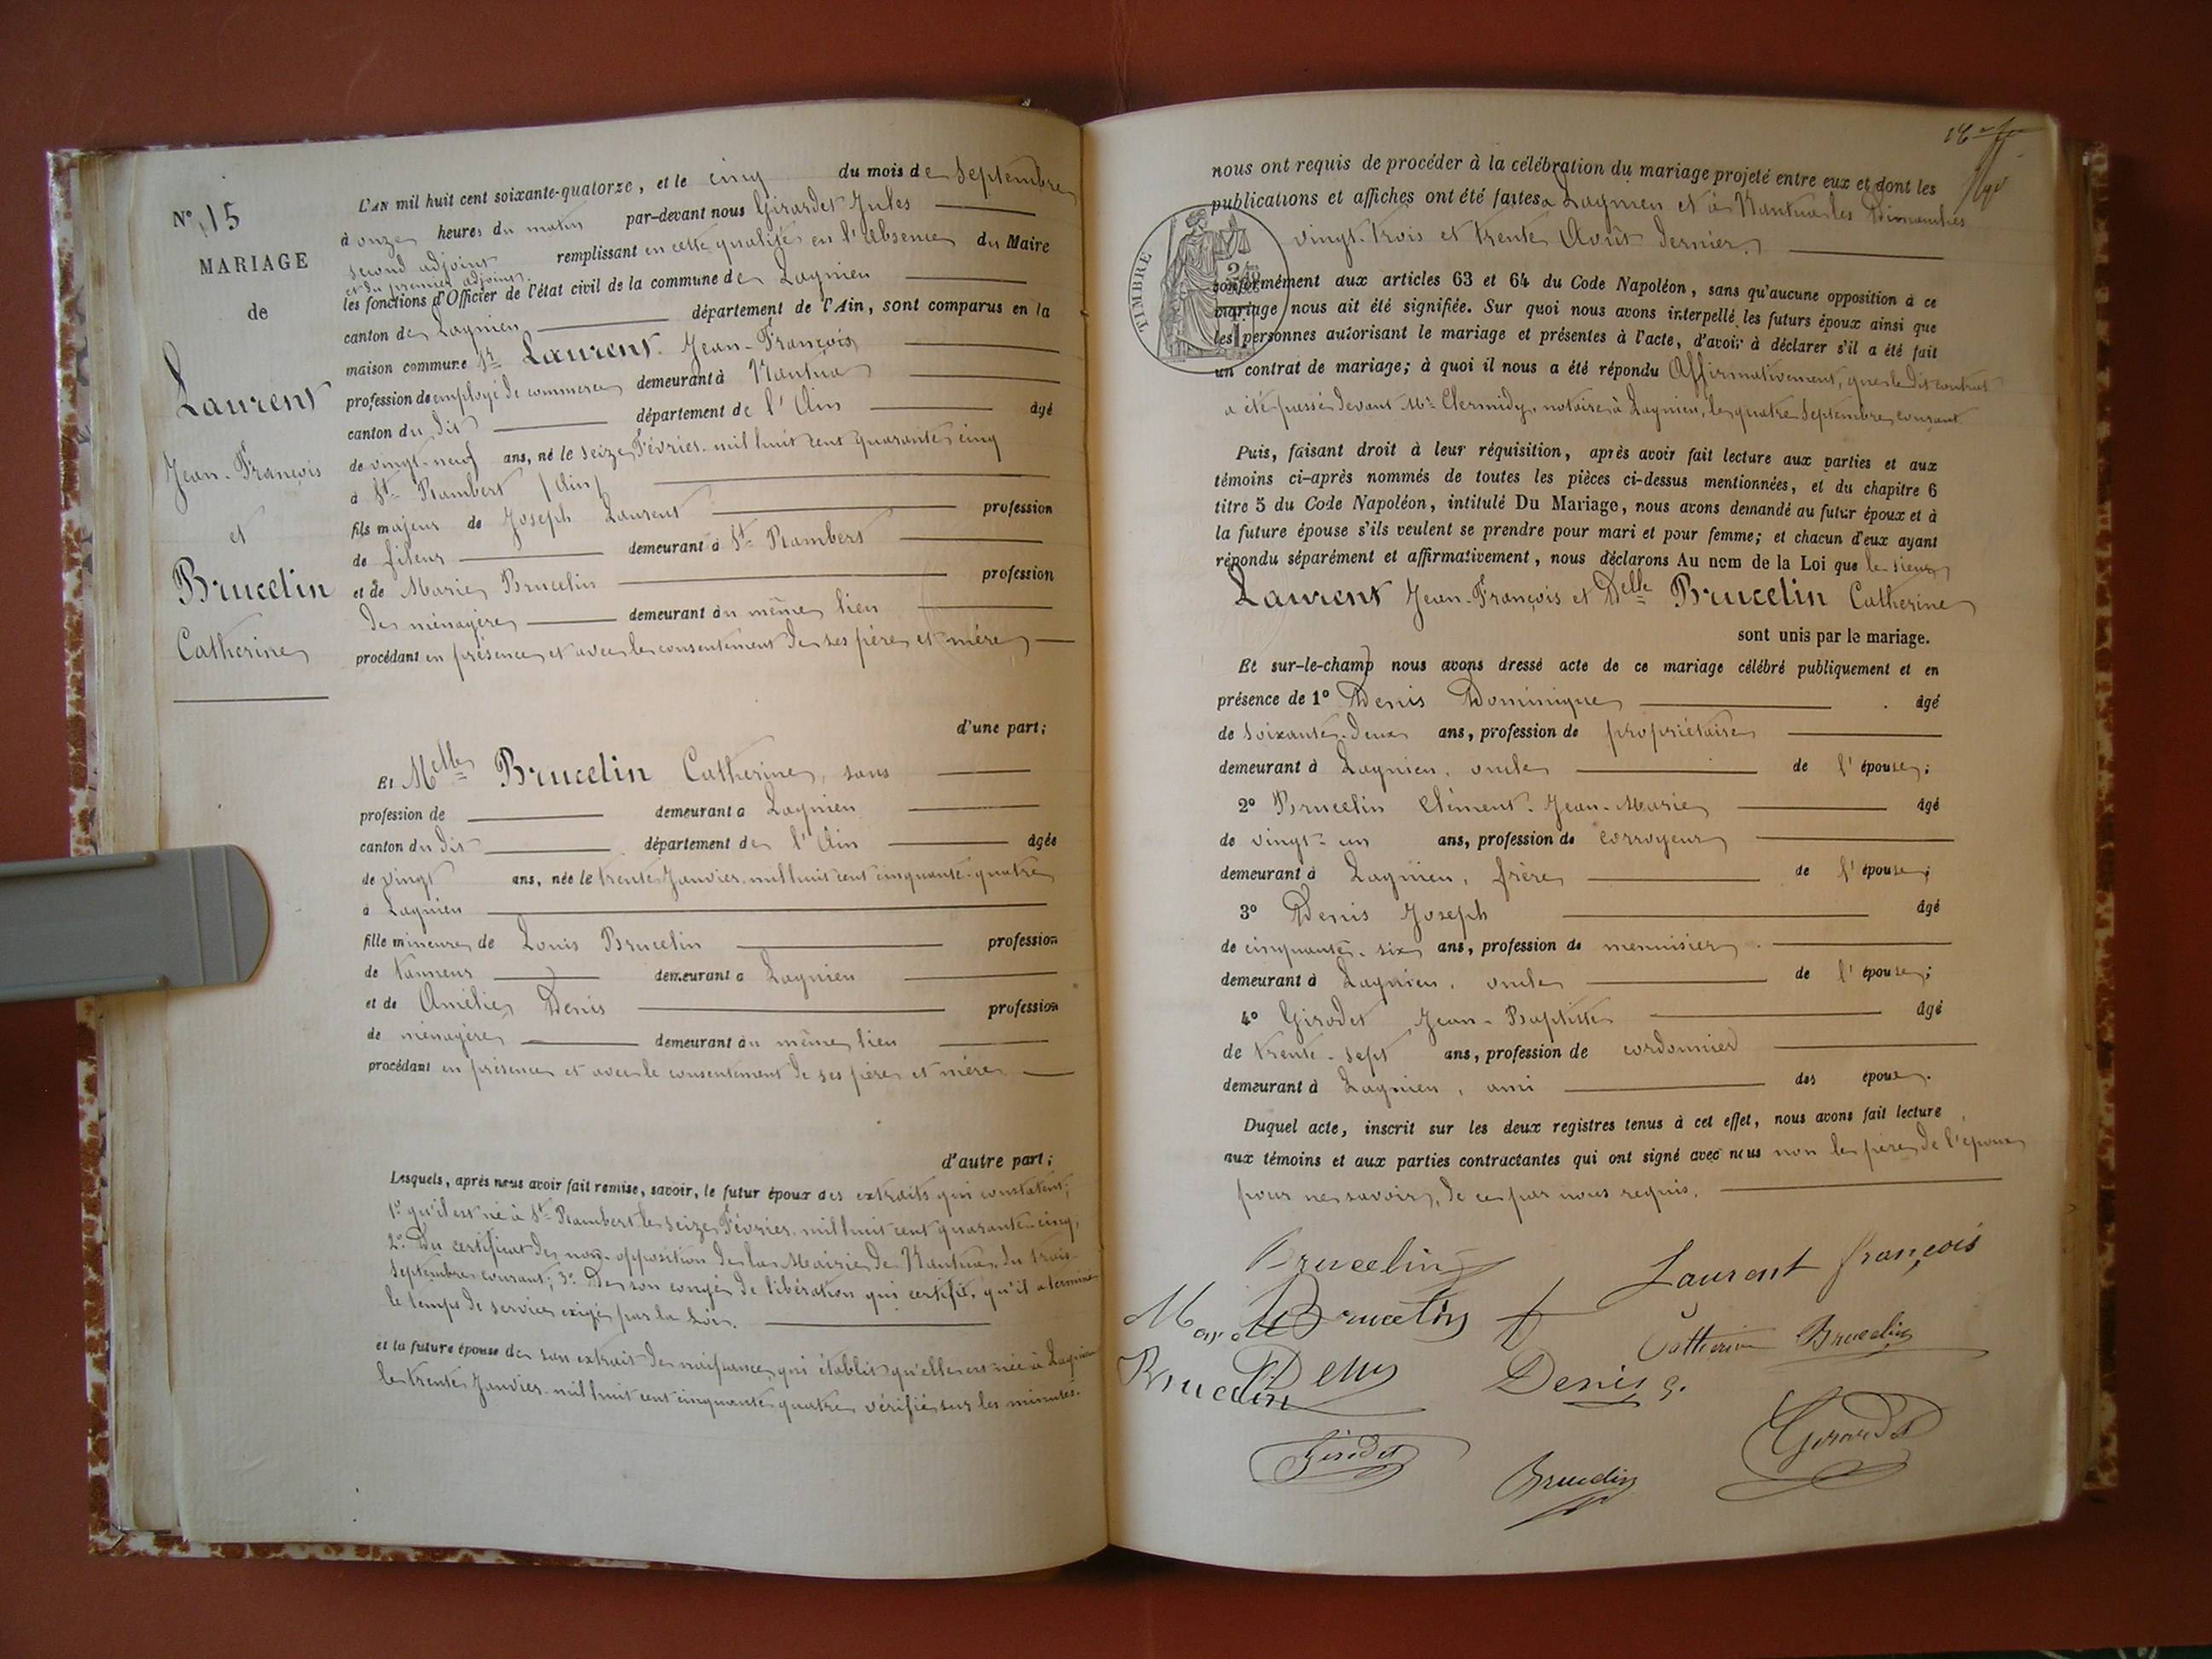 N° 15
MARIAGE
de
Laurent
Jean-François
et
Brucelin
Catherine
L'AN mil huit cent soixante-quatorze, et le cinq du mois de Septembre
à onze heures du matin par-devant nous Girardet Jules
second adjoint remplissant en cette qualité en l'absence du Maire
et du premier adjoint.
les fonctions d'Officier de l'état civil de la commune de Lagnieu
canton de Lagnieu département de l'Ain, sont comparus en la
maison commune Sr Laurent Jean-François
profession de employé de commerce demeurant à Nantua
canton du dit département de l'Ain âgé
de vingt-neuf ans, né le seize Février mil huit cent quarante cinq
à St Rambert (Ain)
fils majeur de Joseph Laurent profession
de fileur demeurant à St Rambert
et de Marie Brucelin profession
de ménagère demeurant au même lieu
procédant en présence et avec le consentement de ses père et mère
d'une part;
Et Melle Brucelin Catherine, sans
profession de demeurant à Lagnieu
canton du dit département de l'Ain âgée
de vingt ans, née le trente Janvier mil huit cent cinquante-quatre
à Lagnieu
fille mineure de Louis Brucelin profession
de tanneur demeurant à Lagnieu
et de Amélie Denis profession
de ménagère demeurant au même lieu
procédant en présence et avec le consentement de ses père et mère
d'autre part;
Lesquels, après nous avoir fait remise, savoir, le futur époux des extraits qui constatent;
1° qu'il est né à St Rambert le seize Février mil huit cent quarante-cinq;
2° Du certificat de non-opposition de la Mairie de Nantua, du trois
Septembre courant; 3° De son congé de libération qui certifie, qu'il a terminé
le temps de service exigé par la Loi.
et la future épouse de son extrait de naissance, qui établit qu'elle est née à Lagnieu
le trente Janvier mil huit cent cinquante quatre vérifié sur les minutes.
nous ont requis de procéder à la célébration du mariage projeté entre eux et dont les
publications et affiches ont été faites à Lagnieu et à Nantua les Dimanches
vingt-trois et trente Août dernier
TIMBRE
conformément aux articles 63 et 64 du Code Napoléon, sans qu'aucune opposition à ce
mariage nous ait été signifiée. Sur quoi nous avons interpellé les futurs époux ainsi que
les personnes autorisant le mariage et présentes à l'acte, d'avoir à déclarer s'il a été fait
un contrat de mariage; à quoi il nous a été répondu Affirmativement, que le dit contrat
a été passé devant Me Clermidy, notaire à Lagnieu, le quatre Septembre courant
Puis, faisant droit à leur réquisition, après avoir fait lecture aux parties et aux
témoins ci-après nommés de toutes les pièces ci-dessus mentionnées, et du chapitre 6
titre 5 du Code Napoléon, intitulé Du Mariage, nous avons demandé au futur époux et à
la future épouse s'ils veulent se prendre pour mari et pour femme; et chacun d'eux ayant
répondu séparément et affirmativement, nous déclarons Au nom de la Loi que le sieur
Laurent Jean-François et Delle Brucelin Catherine
sont unis par le mariage.
Et sur-le-champ nous avons dressé acte de ce mariage célébré publiquement et en
présence de 1° Denis Dominique âgé
de soixante-deux ans, profession de propriétaire
demeurant à Lagnieu, oncle de l'épouse;
2° Brucelin Clément-Jean-Marie âgé
de vingt-un ans, profession de corroyeur
demeurant à Lagnieu, frère de l'épouse;
3° Denis Joseph âgé
de cinquante-six ans, profession de menuisier
demeurant à Lagnieu, oncle de l'épouse;
4° Girodet Jean-Baptiste âgé
de trente-sept ans, profession de cordonnier
demeurant à Lagnieu, ami des époux.
Duquel acte, inscrit sur les deux registres tenus à cet effet, nous avons fait lecture
aux témoins et aux parties contractantes qui ont signé avec nous non le père de l'époux
pour ne savoir, de ce par nous requis.
Brucelin
Laurent françois
Brucelin
Catherine Brucelin
Denis
Denis J.
Brucelin
Girodet
Brucelin
Girardet